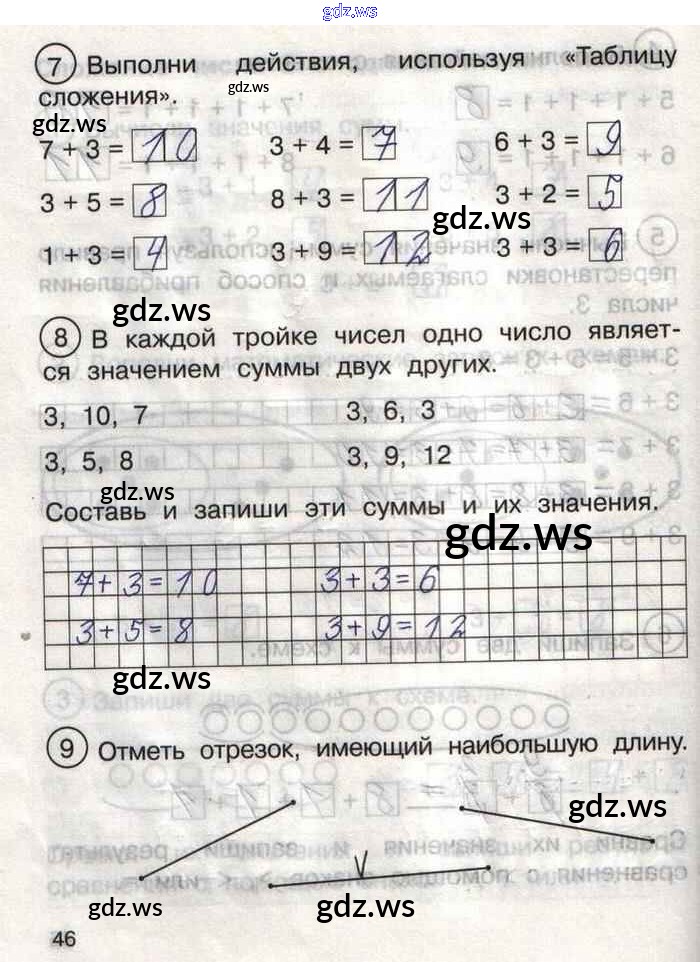 gdz.ws
7 Выполни действия, используя «Таблицу
сложения».
gdz.ws
gdz.ws
7 + 3 = 10 3 + 4 = 7 6 + 3 = 9
3 + 5 = 8 8 + 3 = 11 3 + 2 = 5
gdz.ws
1 + 3 = 4 3 + 9 = 12 3 + 3 = 6
gdz.ws
8 В каждой тройке чисел одно число являет-
ся значением суммы двух других.
3, 10, 7 3, 6, 3
3, 5, 8 3, 9, 12
gdz.ws
Составь и запиши эти суммы и их значения.
gdz.ws
7 + 3 = 10 3 + 3 = 6
3 + 5 = 8 3 + 9 = 12
gdz.ws
9 Отметь отрезок, имеющий наибольшую длину.
gdz.ws
V
gdz.ws gdz.ws
46